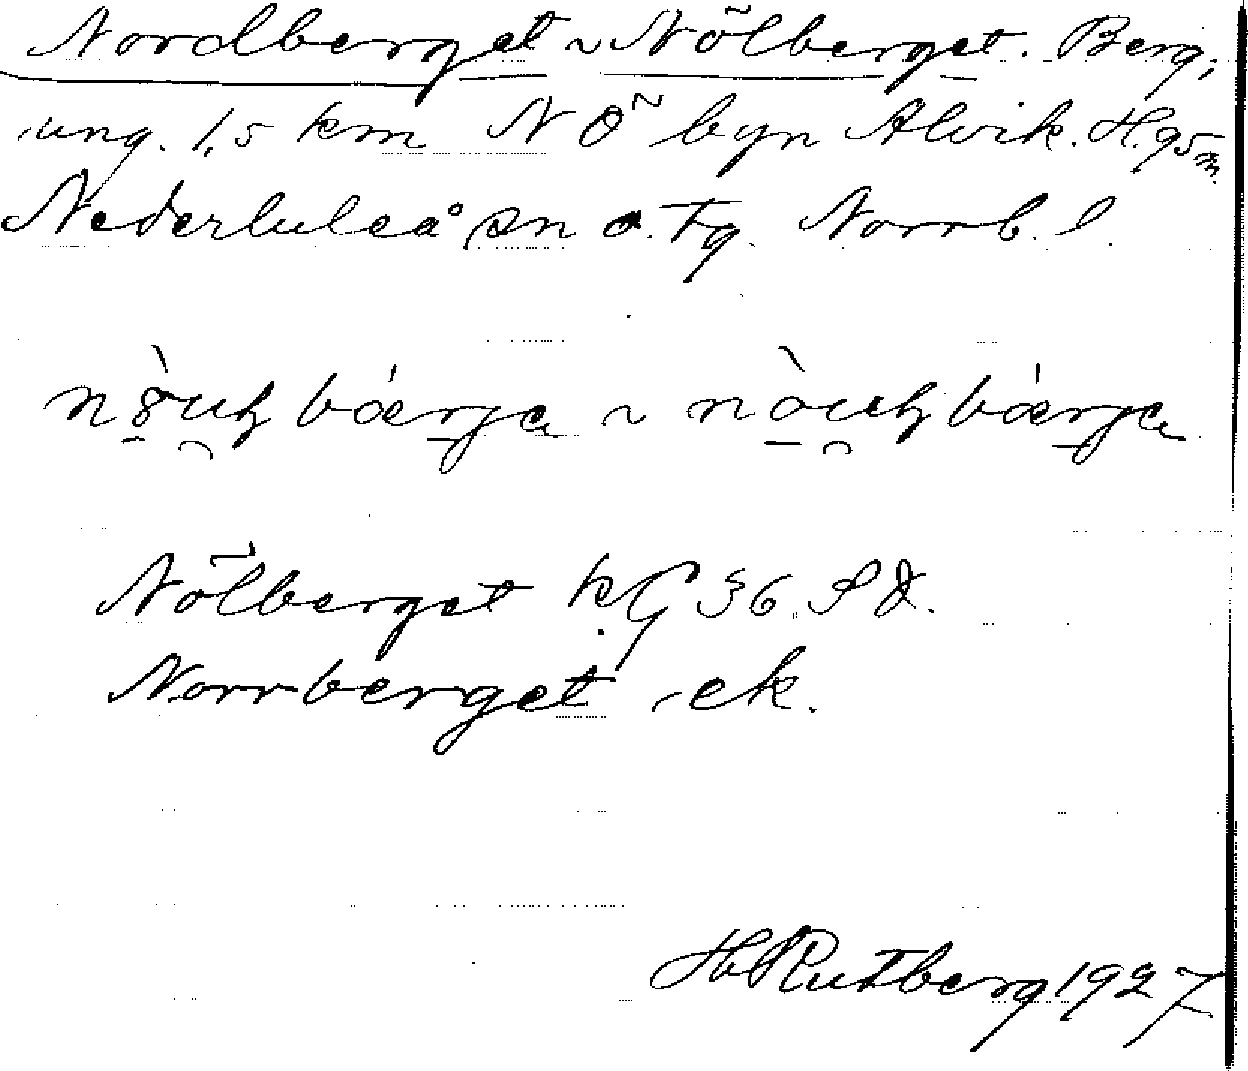 Nordberget ~ Nölberget. Berg,
ung. 1,5 km NÖ byn Alvik. H. 95 m.
Nederluleå sn o. Tg. Norrb. l.
Nölberget kG 36 SV.
Norrberget ek.
H Rutberg 1927